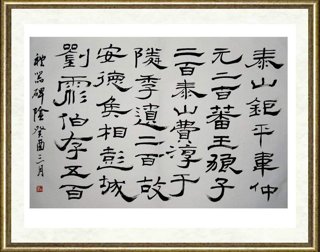 泰山鉅平韋仲
元二百蕃王狼子
二百泰山費淳于
隣季遺二百故
安德矦相彭城
劉彪伯存五百
礼器碑陰癸酉三月